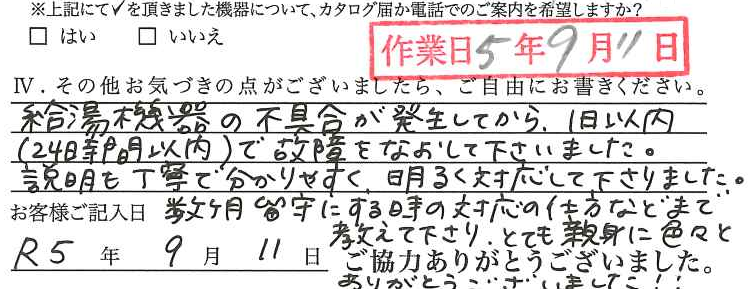 ※上記にて✓を頂きました機器について、カタログ届か電話でのご案内を希望しますか?
□ はい □ いいえ
作業日5年9月11日
Ⅳ．その他お気づきの点がございましたら、ご自由にお書きください。
給湯機器の不具合が発生してから、1日以内
(24時間以内)で故障をなおして下さいました。
説明も丁寧で分かりやすく、明るく対応して下さりました。
お客様ご記入日 数ヶ月留守にする時の対応の仕方などまで
教えて下さり、とても親身に色々と
R5 年 9 月 11 日 ご協力ありがとうございました。
ありがとうございました!!